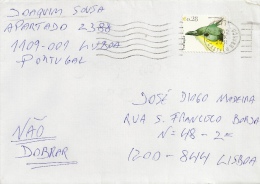 JOAQUIM SOUSA
APARTADO 2388
1109-001 LISBOA
PORTUGAL
NÃO
DOBRAR
JOSÉ DIOGO MADEIRA
RUA S. FRANCISCO BORJA
Nº 48 - 2º
1200-844 LISBOA